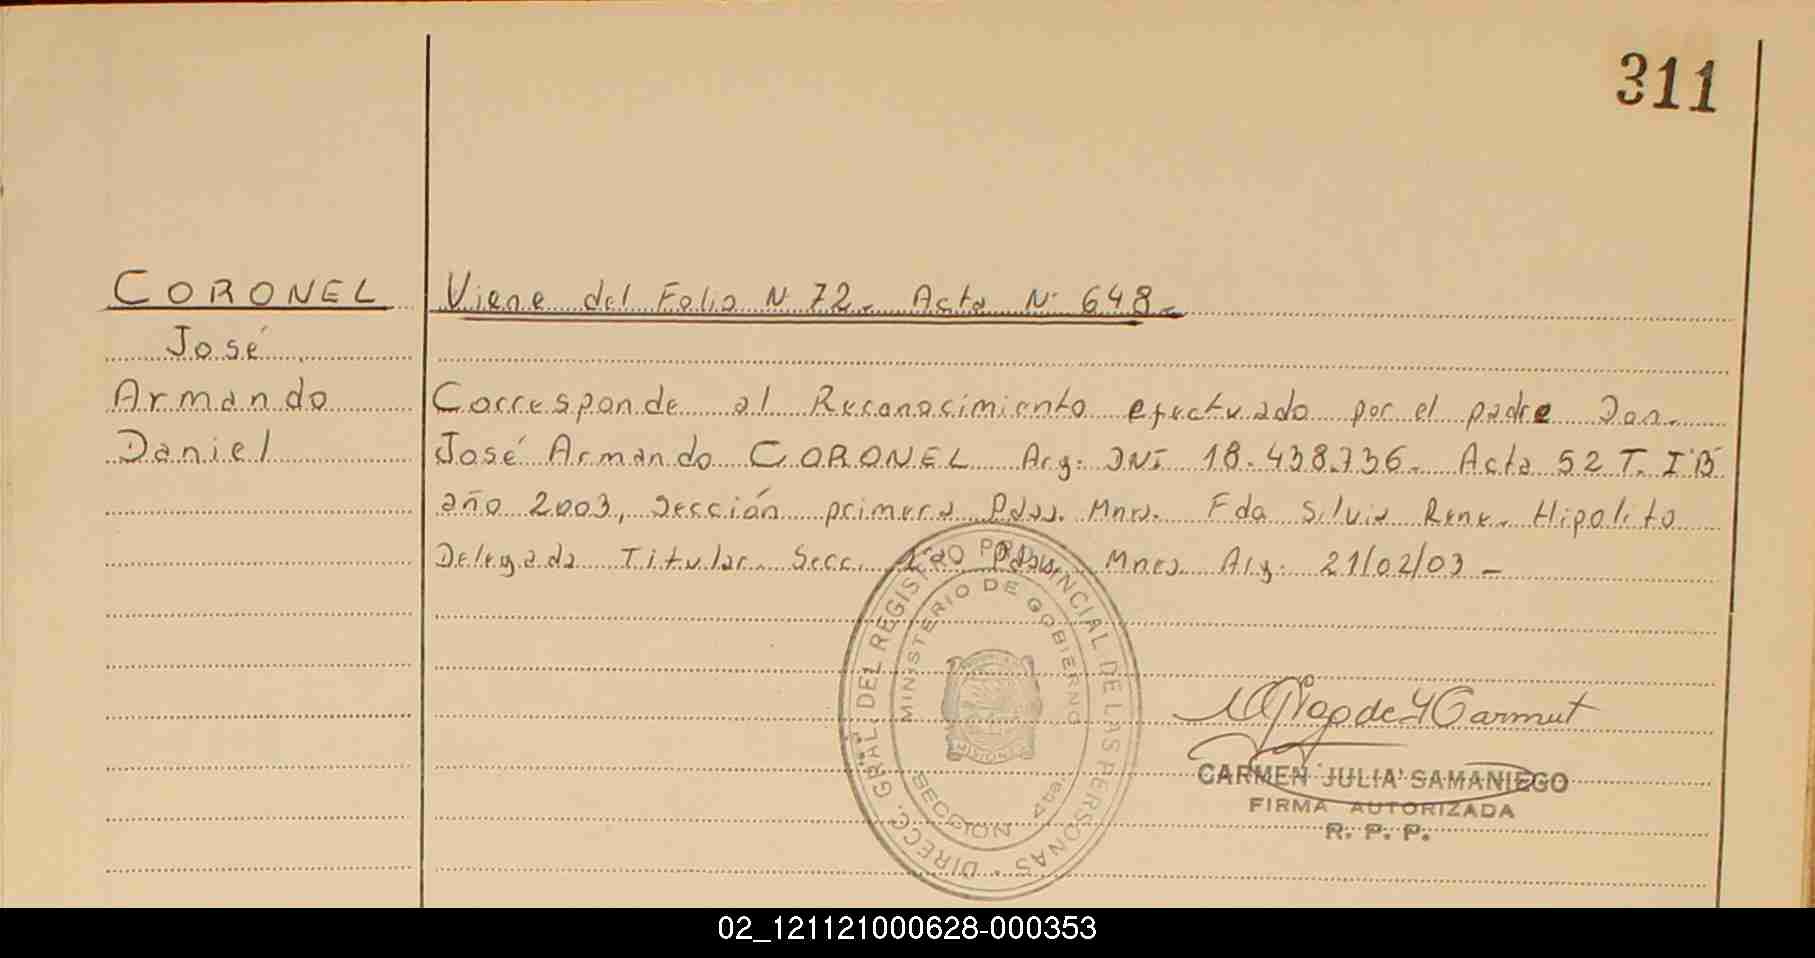 311
CORONEL
José
Armando
Daniel
Viene del Folio Nº 72.- Acta Nº 648.-
Corresponde al Reconocimiento efectuado por el padre Don.
José Armando CORONEL Arg. DNI 18.438.736. Acta 52 T. IºB
año 2003, Sección primera Pdas. Mnes. Fda Silvia Rene. Hipolito
Delegada Titular. Secc. 1ra Pdas. Mnes Arg. 21/02/03 -
DIRECC. GRAL. DEL REGISTRO PROVINCIAL DE LAS PERSONAS
MINISTERIO DE GOBIERNO
MISIONES
SECCION 4ta
CARMEN JULIA SAMANIEGO
FIRMA AUTORIZADA
R. P. P.
02_121121000628-000353